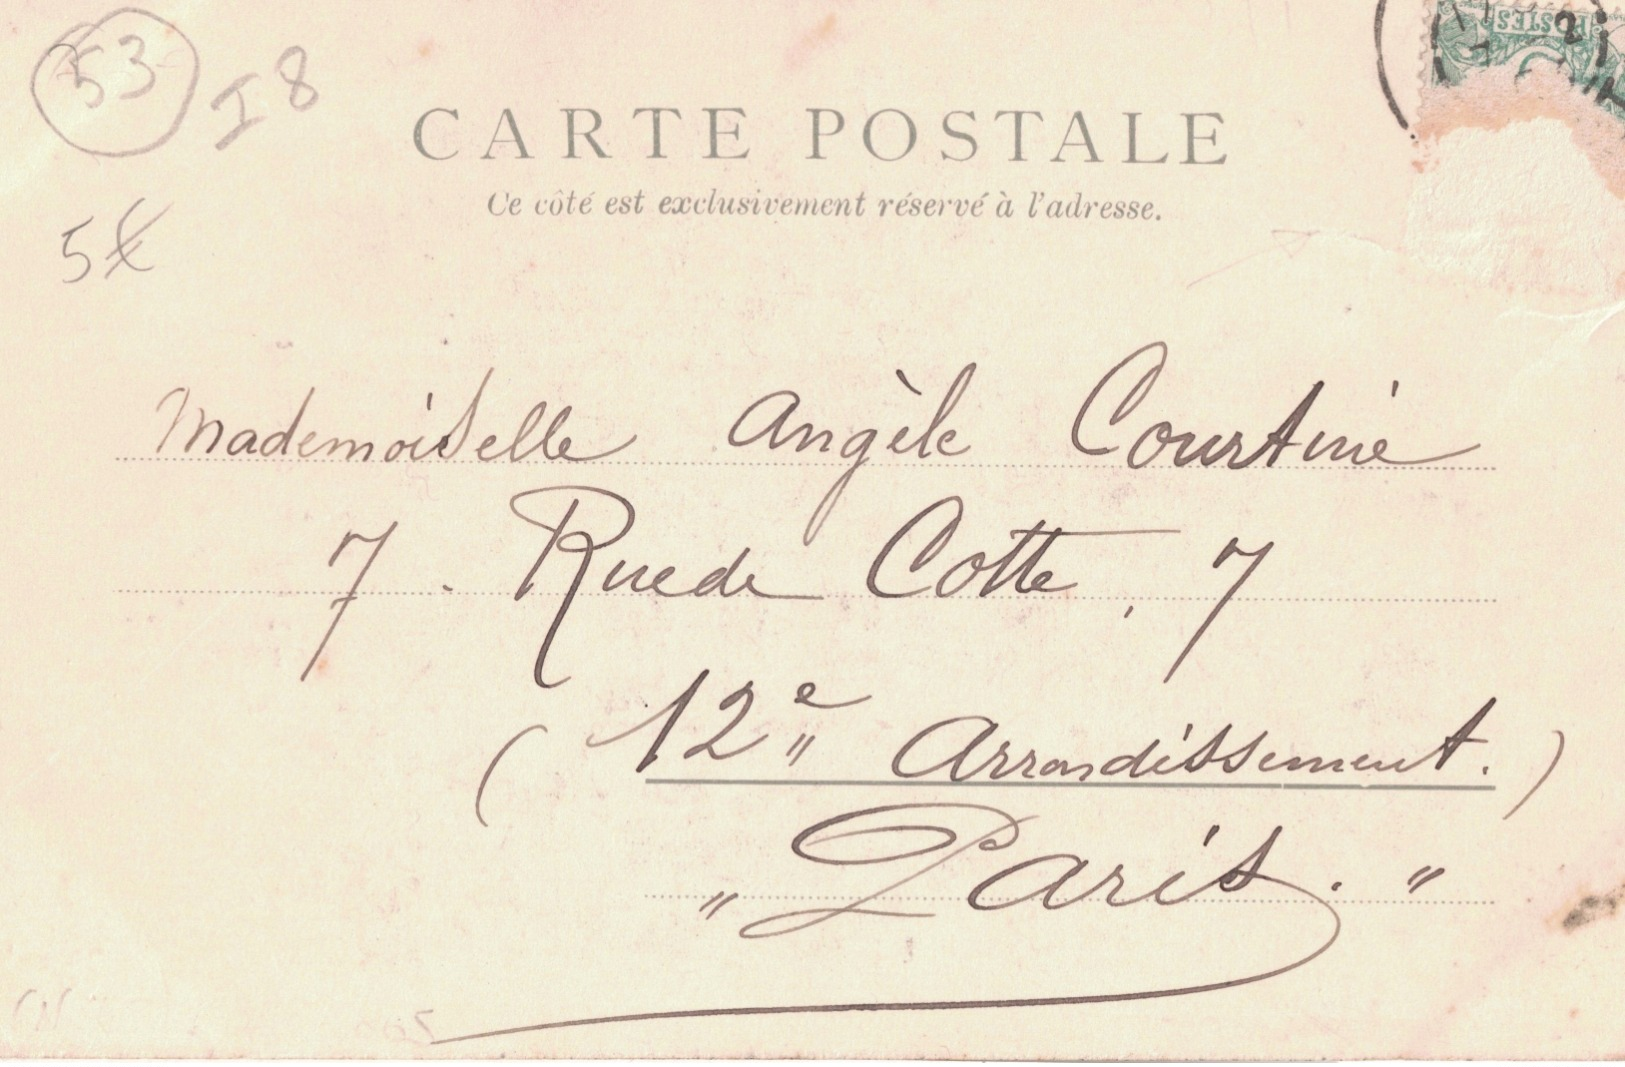 53
I 8
CARTE POSTALE
Ce côté est exclusivement réservé à l'adresse.
5€
POSTES
Mademoiselle Angèle Courtine
7 - Rue de Cotte, 7
( 12e Arrondissement. )
" Paris. "